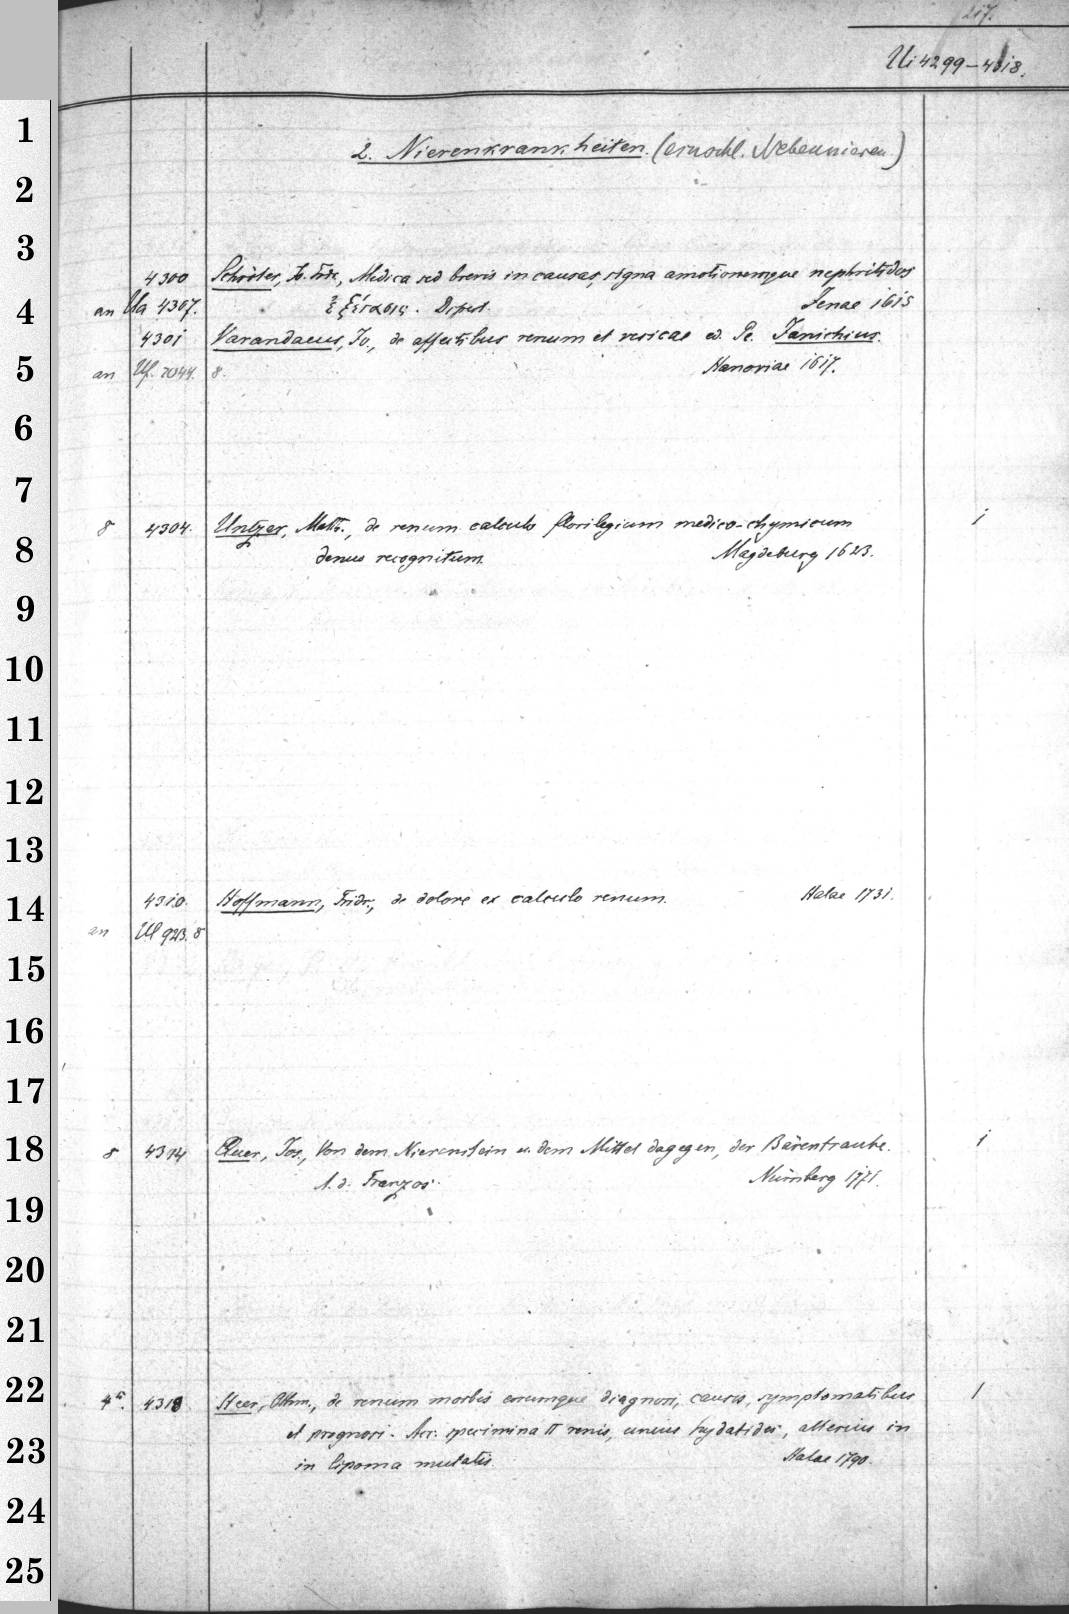 217.
Ui 4299–4318.
2. Nierenkrankheiten. (einschl. Nebennieren.)
4300 Schröter, Jo. Frdr., Medica sed brevis in causas, signa amotionemque nephritidos
an Ua 4307. ἐξέτασις. Dissert. Jenae 1615
4301 Varandaeus, Jo., de affectibus renum et vesicae ed. Pe. Janichius.
an Uf. 2044. 8. Hanoviae 1617.
8 4304. Untzer, Matth., de renum calculo florilegium medico-chymicum 1
denuo recognitum. Magdeburg 1623.
4310. Hoffmann, Fridr., de dolore ex calculo renum. Halae 1731.
an Ul 923. 8
8 4314 Quer, Jos., Von dem Nierenstein u. dem Mittel dagegen, der Bärentraube. 1
A. d. Französ. Nürnberg 1771.
4°. 4318 Heer, Othm., de renum morbis eorumque diagnosi, causis, symptomatibus 1
et prognosi. Acc. specimina II renis, unius hydatides, alterius in
in lipoma mutatis. Halae 1790.
1
2
3
4
5
6
7
8
9
10
11
12
13
14
15
16
17
18
19
20
21
22
23
24
25